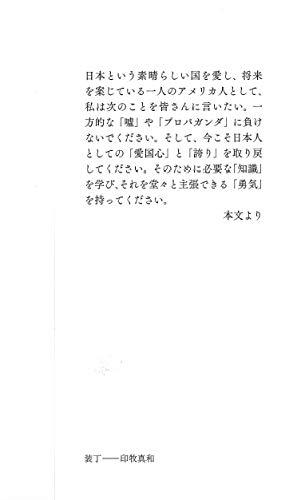 日本という素晴らしい国を愛し、将来
を案じている一人のアメリカ人として、
私は次のことを皆さんに言いたい。一
方的な「嘘」や「プロパガンダ」に負け
ないでください。そして、今こそ日本人
としての「愛国心」と「誇り」を取り戻
してください。そのために必要な「知識」
を学び、それを堂々と主張できる「勇気」
を持ってください。
本文より
装丁――印牧真和